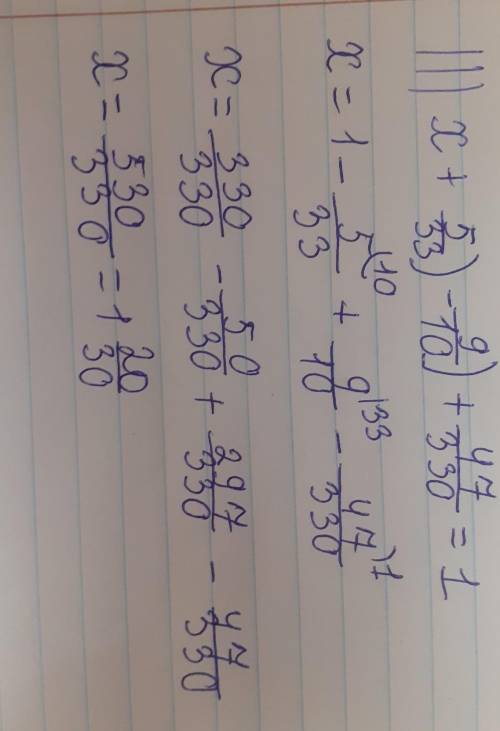 III) x + 5/33) - 9/10) + 47/330 = 1
x = 1 - 5(10/33 + 9)33/10 - 47)1/330
x = 330/330 - 50/330 + 297/330 - 47/330
x = 530/330 = 1 20/30